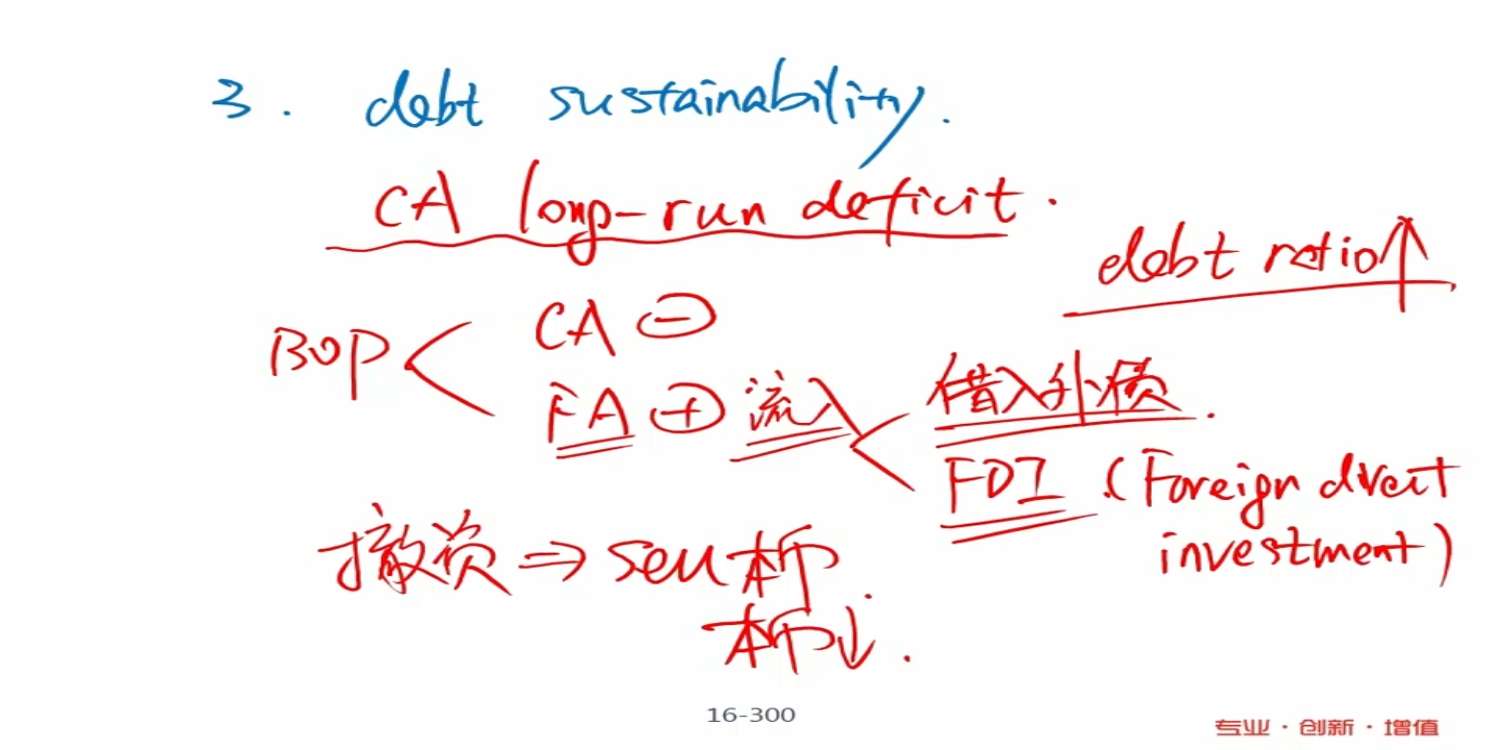 3. debt sustainability.
CA long-run deficit.
debt ratio↑
BOP < CA ⊖
FA ⊕ 流入 < 借入外债.
FDI (Foreign direct investment)
撤资 ⇒ sell 本币.
本币↓.
16-300
专业·创新·增值